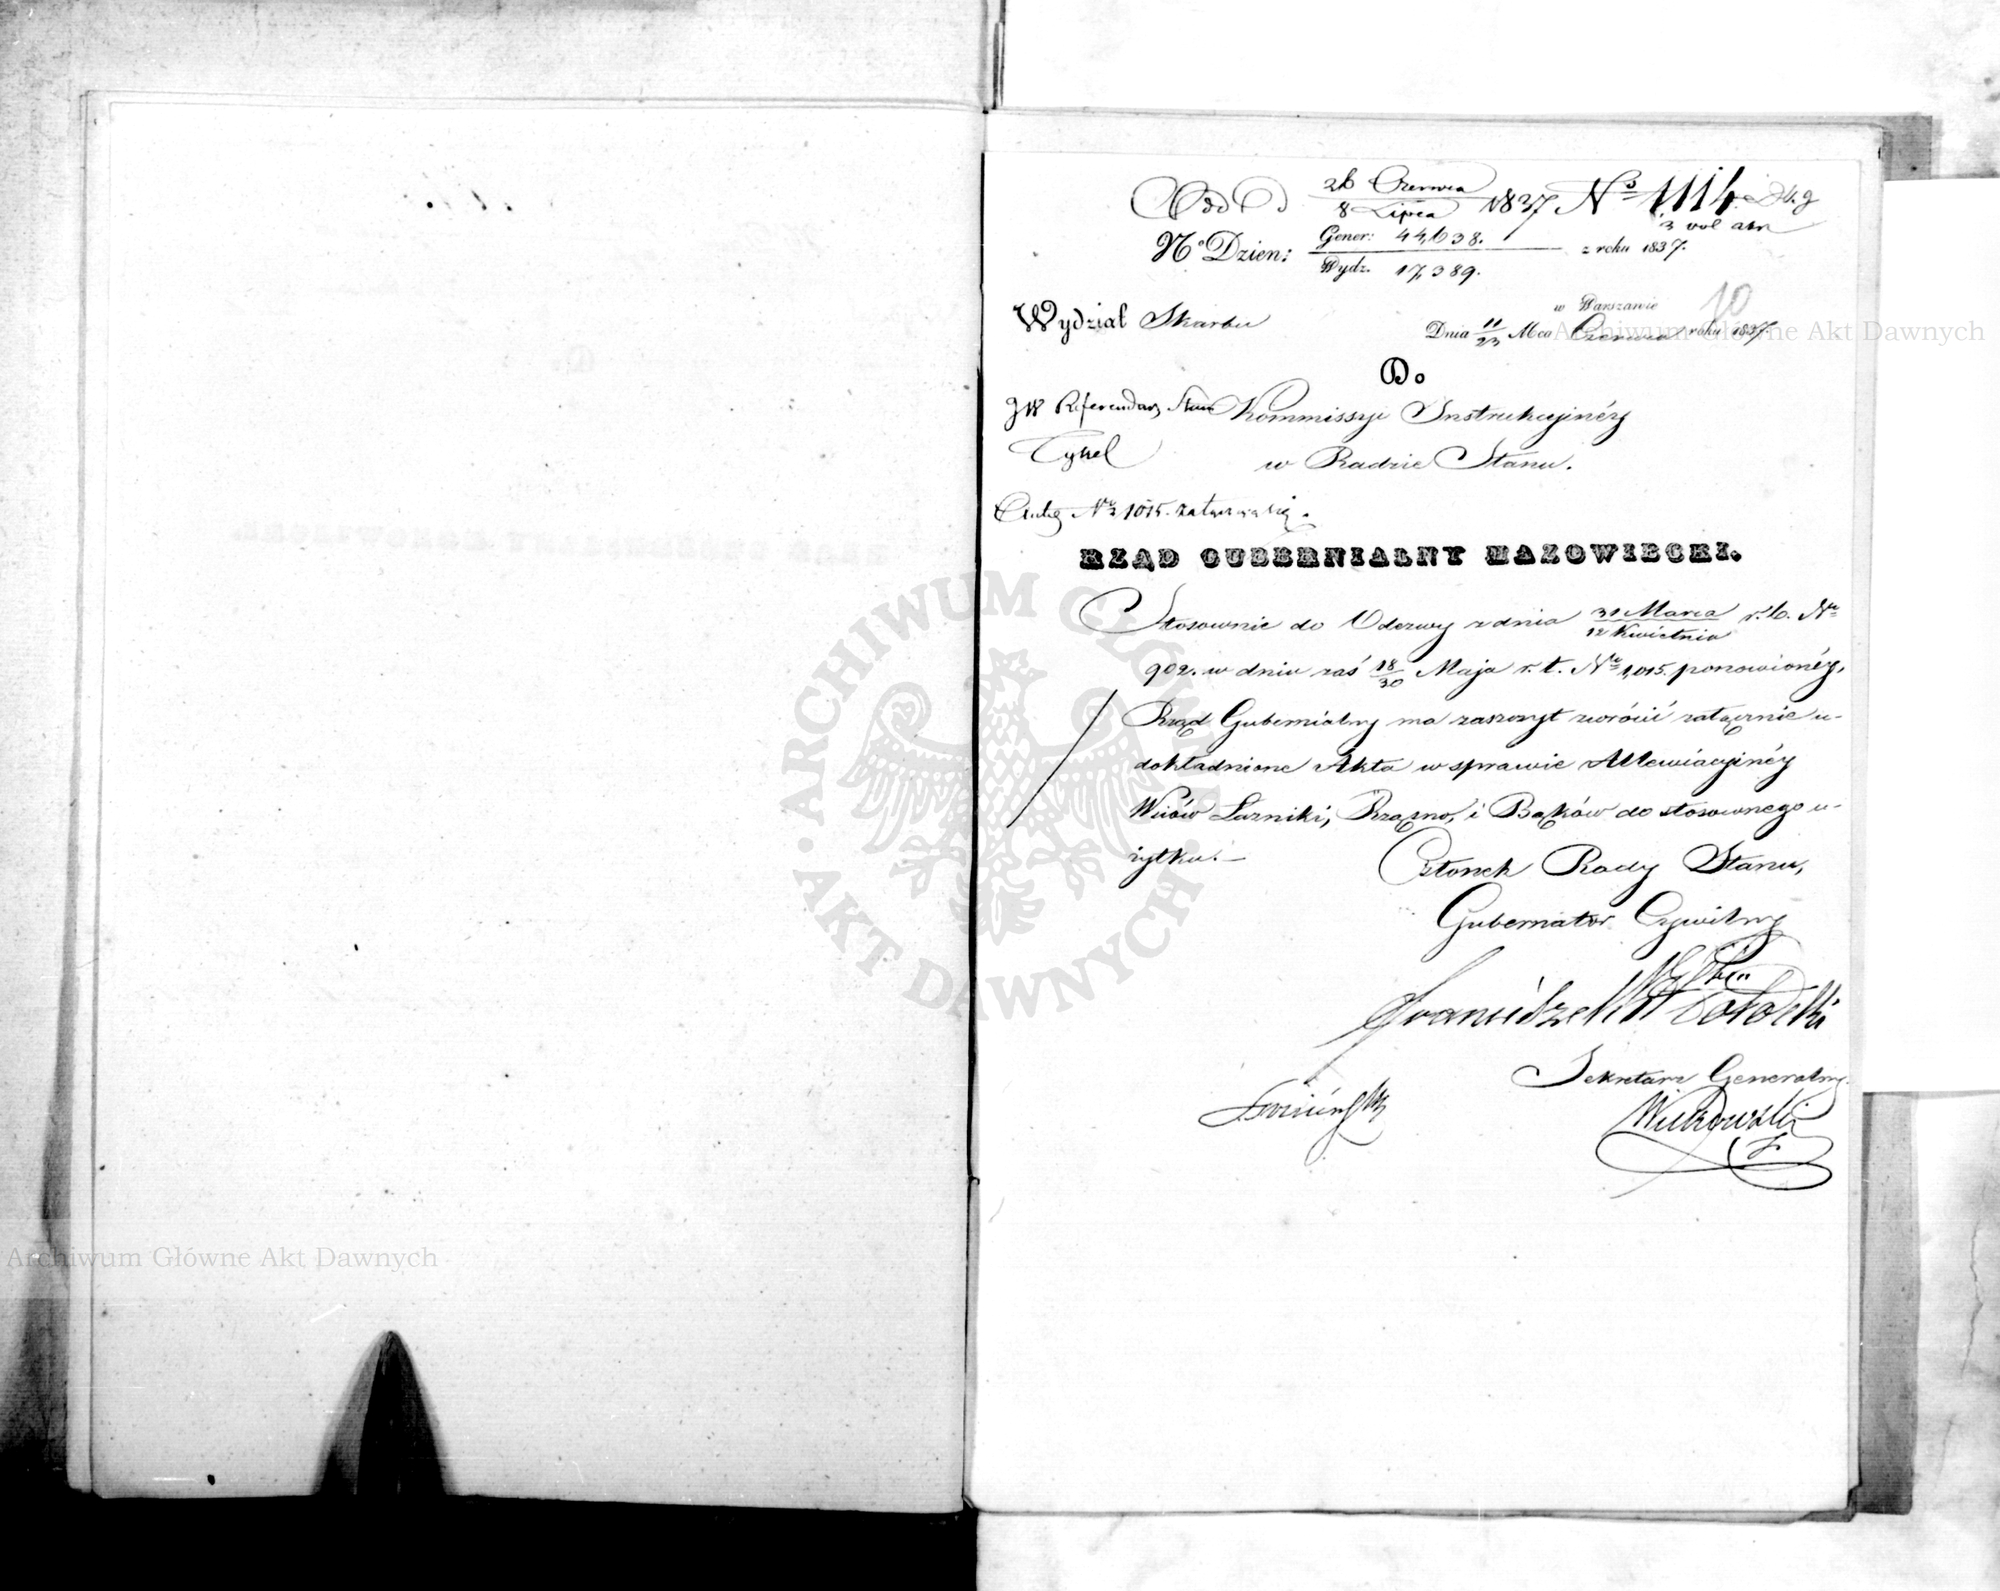 Odd D 26 Czerwca / 8 Lipca 1837 No 1114
3 vol akt
No Dzien: Gener: 44,638. / Wydz. 17,389. z roku 1837.
10
w Warszawie
Wydział Skarbu
Dnia 11/23 Mca Czerwca roku 1837.
Do
JW Referendarz Stanu
Kommissyi Instrukcyjnéy
Tykel
w Radzie Stanu.
No 1015. załatwia się.
RZĄD GUBERNIALNY MAZOWIECKI.
Stosownie do Odezwy z dnia 31 Marca / 12 Kwietnia r. b. No
902. w dniu zaś 18/30 Maja r. t. No 1,015. ponowionéy,
Rząd Gubernialny ma zaszczyt zwrócić załącznie u-
dokładnione Akta w sprawie Allewiacyjnéy
Wsiów Łazniki, Rząsno, i Bąków do stosownego u-
żytku. —
Członek Rady Stanu,
Gubernator Cywilny
Sekretarz Generalny
Archiwum Główne Akt Dawnych
ARCHIWUM GŁÓWNE · AKT DAWNYCH ·
Archiwum Główne Akt Dawnych